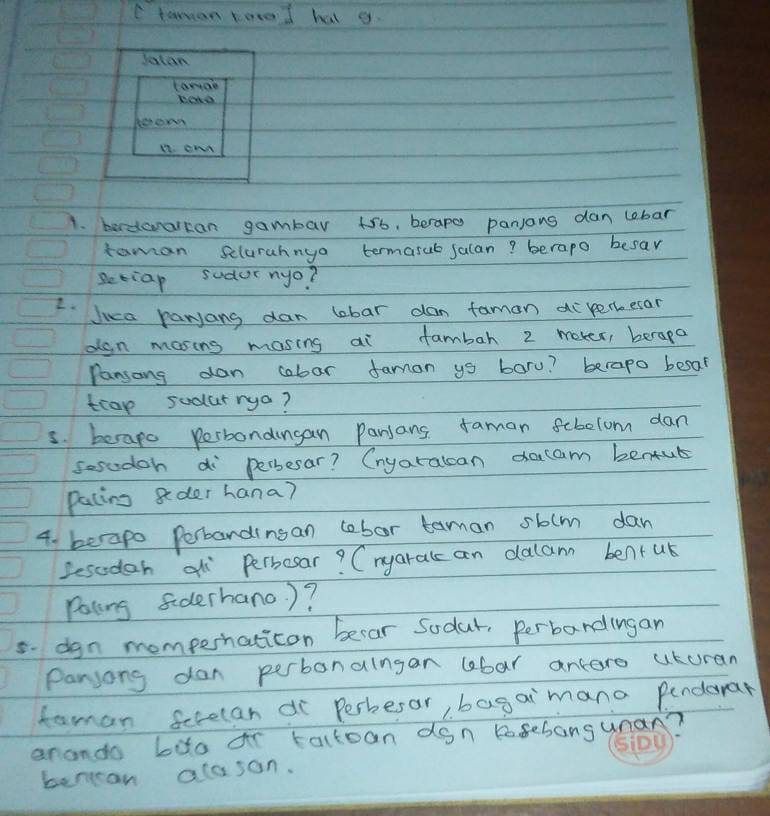 [ taman kota ] hal 9.
Jalan
taman
kota
12 cm
1. berdasarkan gambar tsb, berapa panjang dan lebar
taman seluruhnya termasuk jalan? berapa besar
setiap sudutnya?
2. Jika panjang dan lebar dan taman di perbesar
dgn masing masing di tambah 2 meter, berapa
Panjang dan lebar taman yg baru? berapa besar
tiap sudut nya?
3. berapa perbandingan panjang taman sebelum dan
sesudah di perbesar? (nyatakan dalam bentuk
paling sederhana)
4. berapa Perbandingan lebar taman sblm dan
sesudah di perbesar? (nyatakan dalam bentuk
paling sederhana.)?
5. dgn memperhatikan besar sudut, perbandingan
panjang dan perbandingan lebar antara ukuran
taman setelah di perbesar, bagaimana pendapat
ananda bila di kaitkan dgn kesebangunan?
berikan alasan.
SiDU